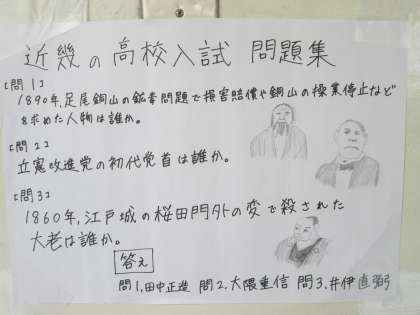 近幾の高校入試 問題集
[問1]
1890年,足尾銅山の鉱毒問題で損害賠償や銅山の操業停止など
を求めた人物は誰か。
[問2]
立憲改進党の初代党首は誰か。
[問3]
1860年,江戸城の桜田門外の変で殺された
大老は誰か。
答え
問1,田中正造 問2,大隈重信 問3,井伊直弼